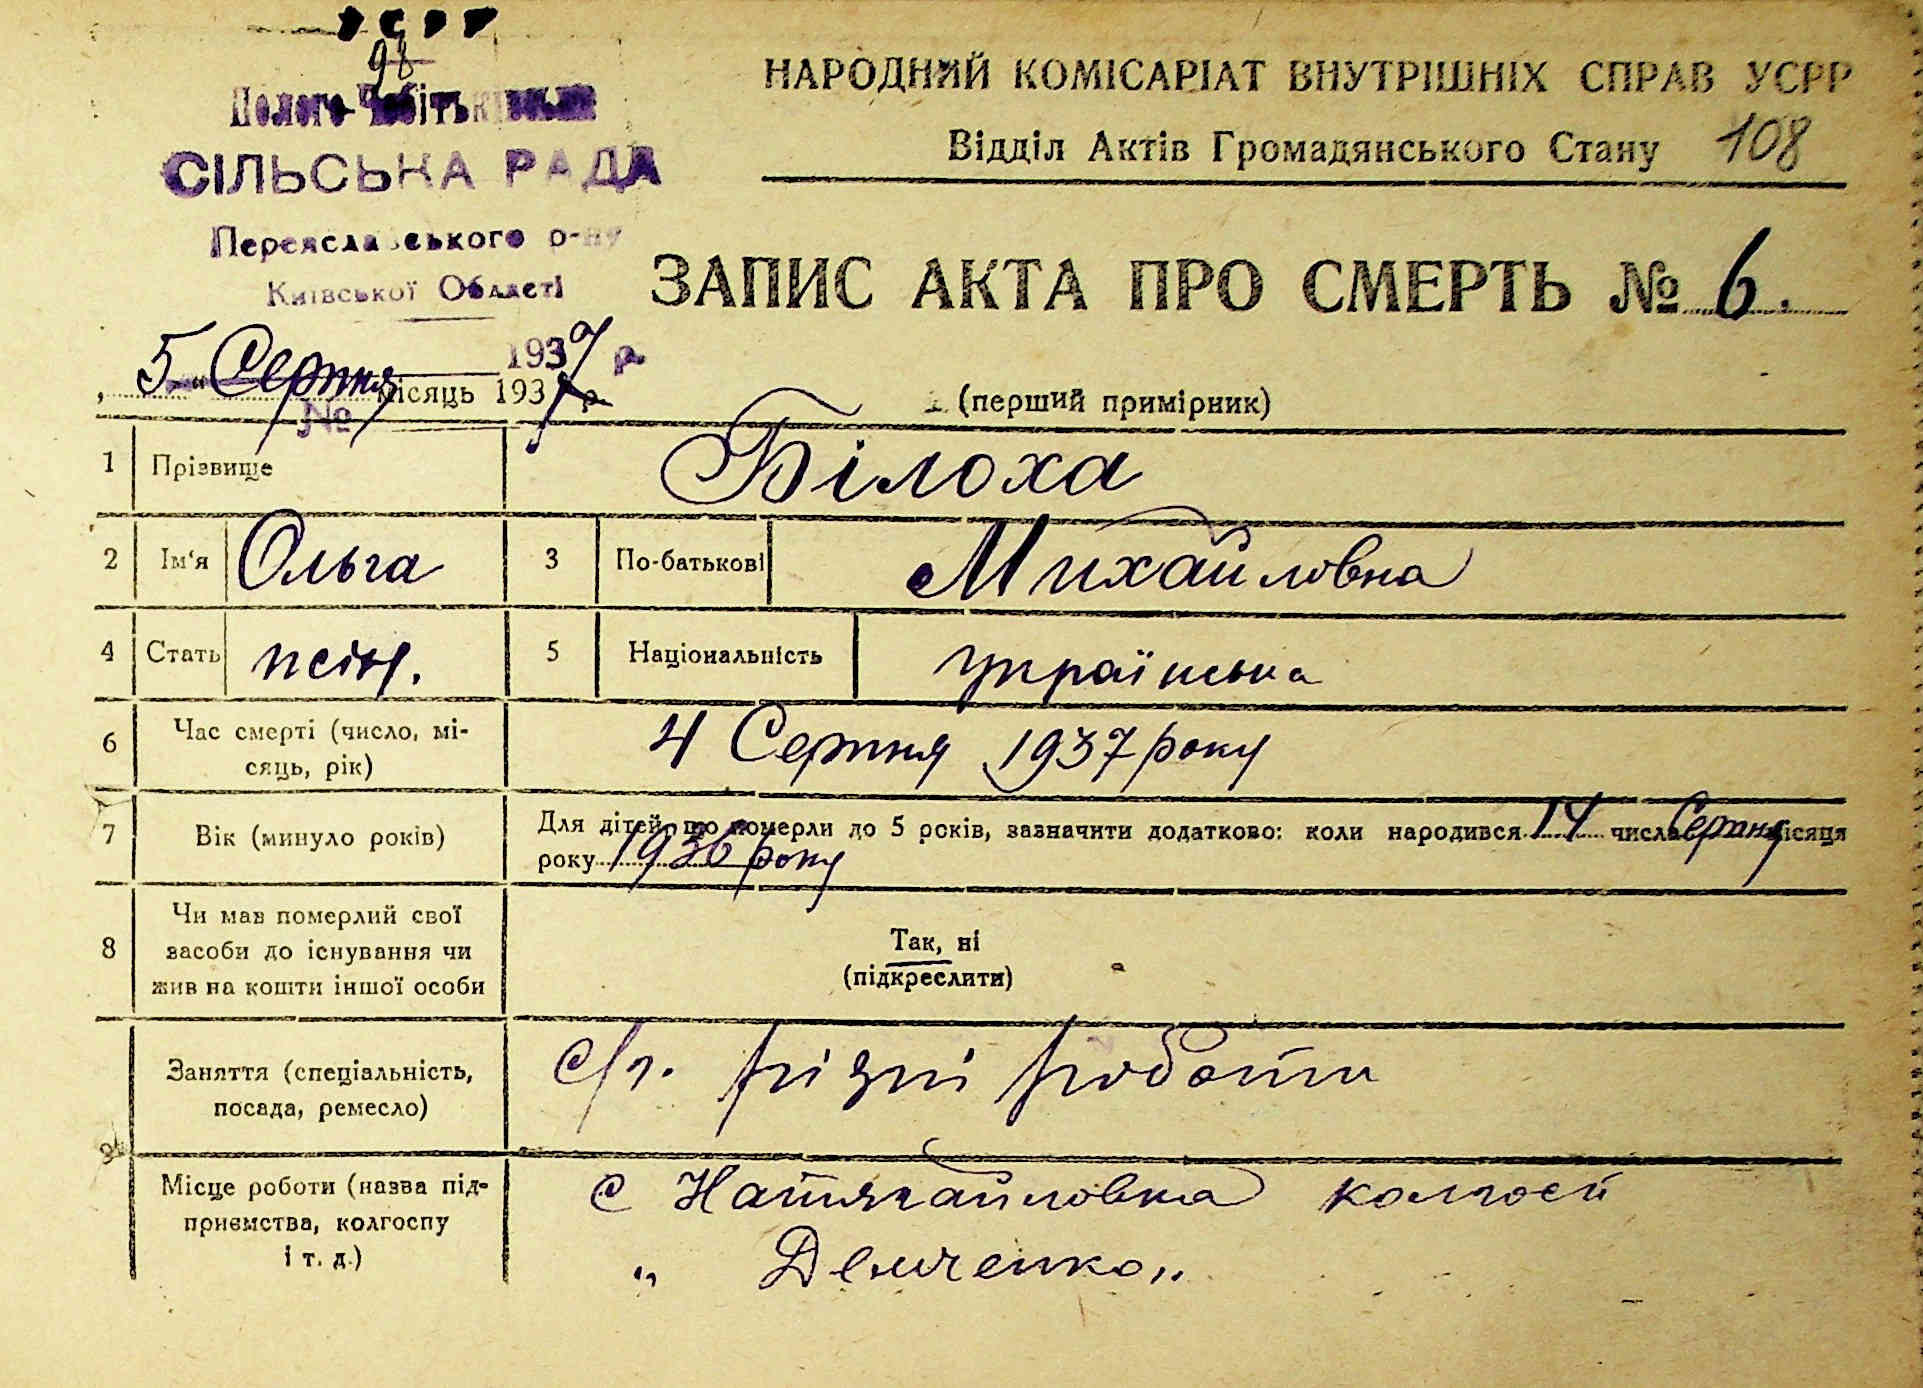 УСРР
98
НАРОДНИЙ КОМІСАРІАТ ВНУТРІШНІХ СПРАВ УСРР
Відділ Актів Громадянського Стану 108
СІЛЬСЬКА РАДА
Переяславського р-ну
Київської Області
ЗАПИС АКТА ПРО СМЕРТЬ № 6.
1937 р.
„5“ Серпня місяць 1937 р.
№
(перший примірник)
1 Прізвище Білоха
2 Ім'я Ольга 3 По-батькові Михайловна
4 Стать жін. 5 Національність українська
6 Час смерті (число, мі-
сяць, рік) 4 Серпня 1937 року
7 Вік (минуло років) Для дітей, що померли до 5 років, зазначити додатково: коли народився 14 числа Серпня місяця
року 1936 року
8 Чи мав померлий свої
засоби до існування чи
жив на кошти іншої особи
Так, ні
(підкреслити)
9 Заняття (спеціальність,
посада, ремесло) с/г. різні роботи
Місце роботи (назва під-
приємства, колгоспу
і т. д.)
с колгосп
„ Демченко „